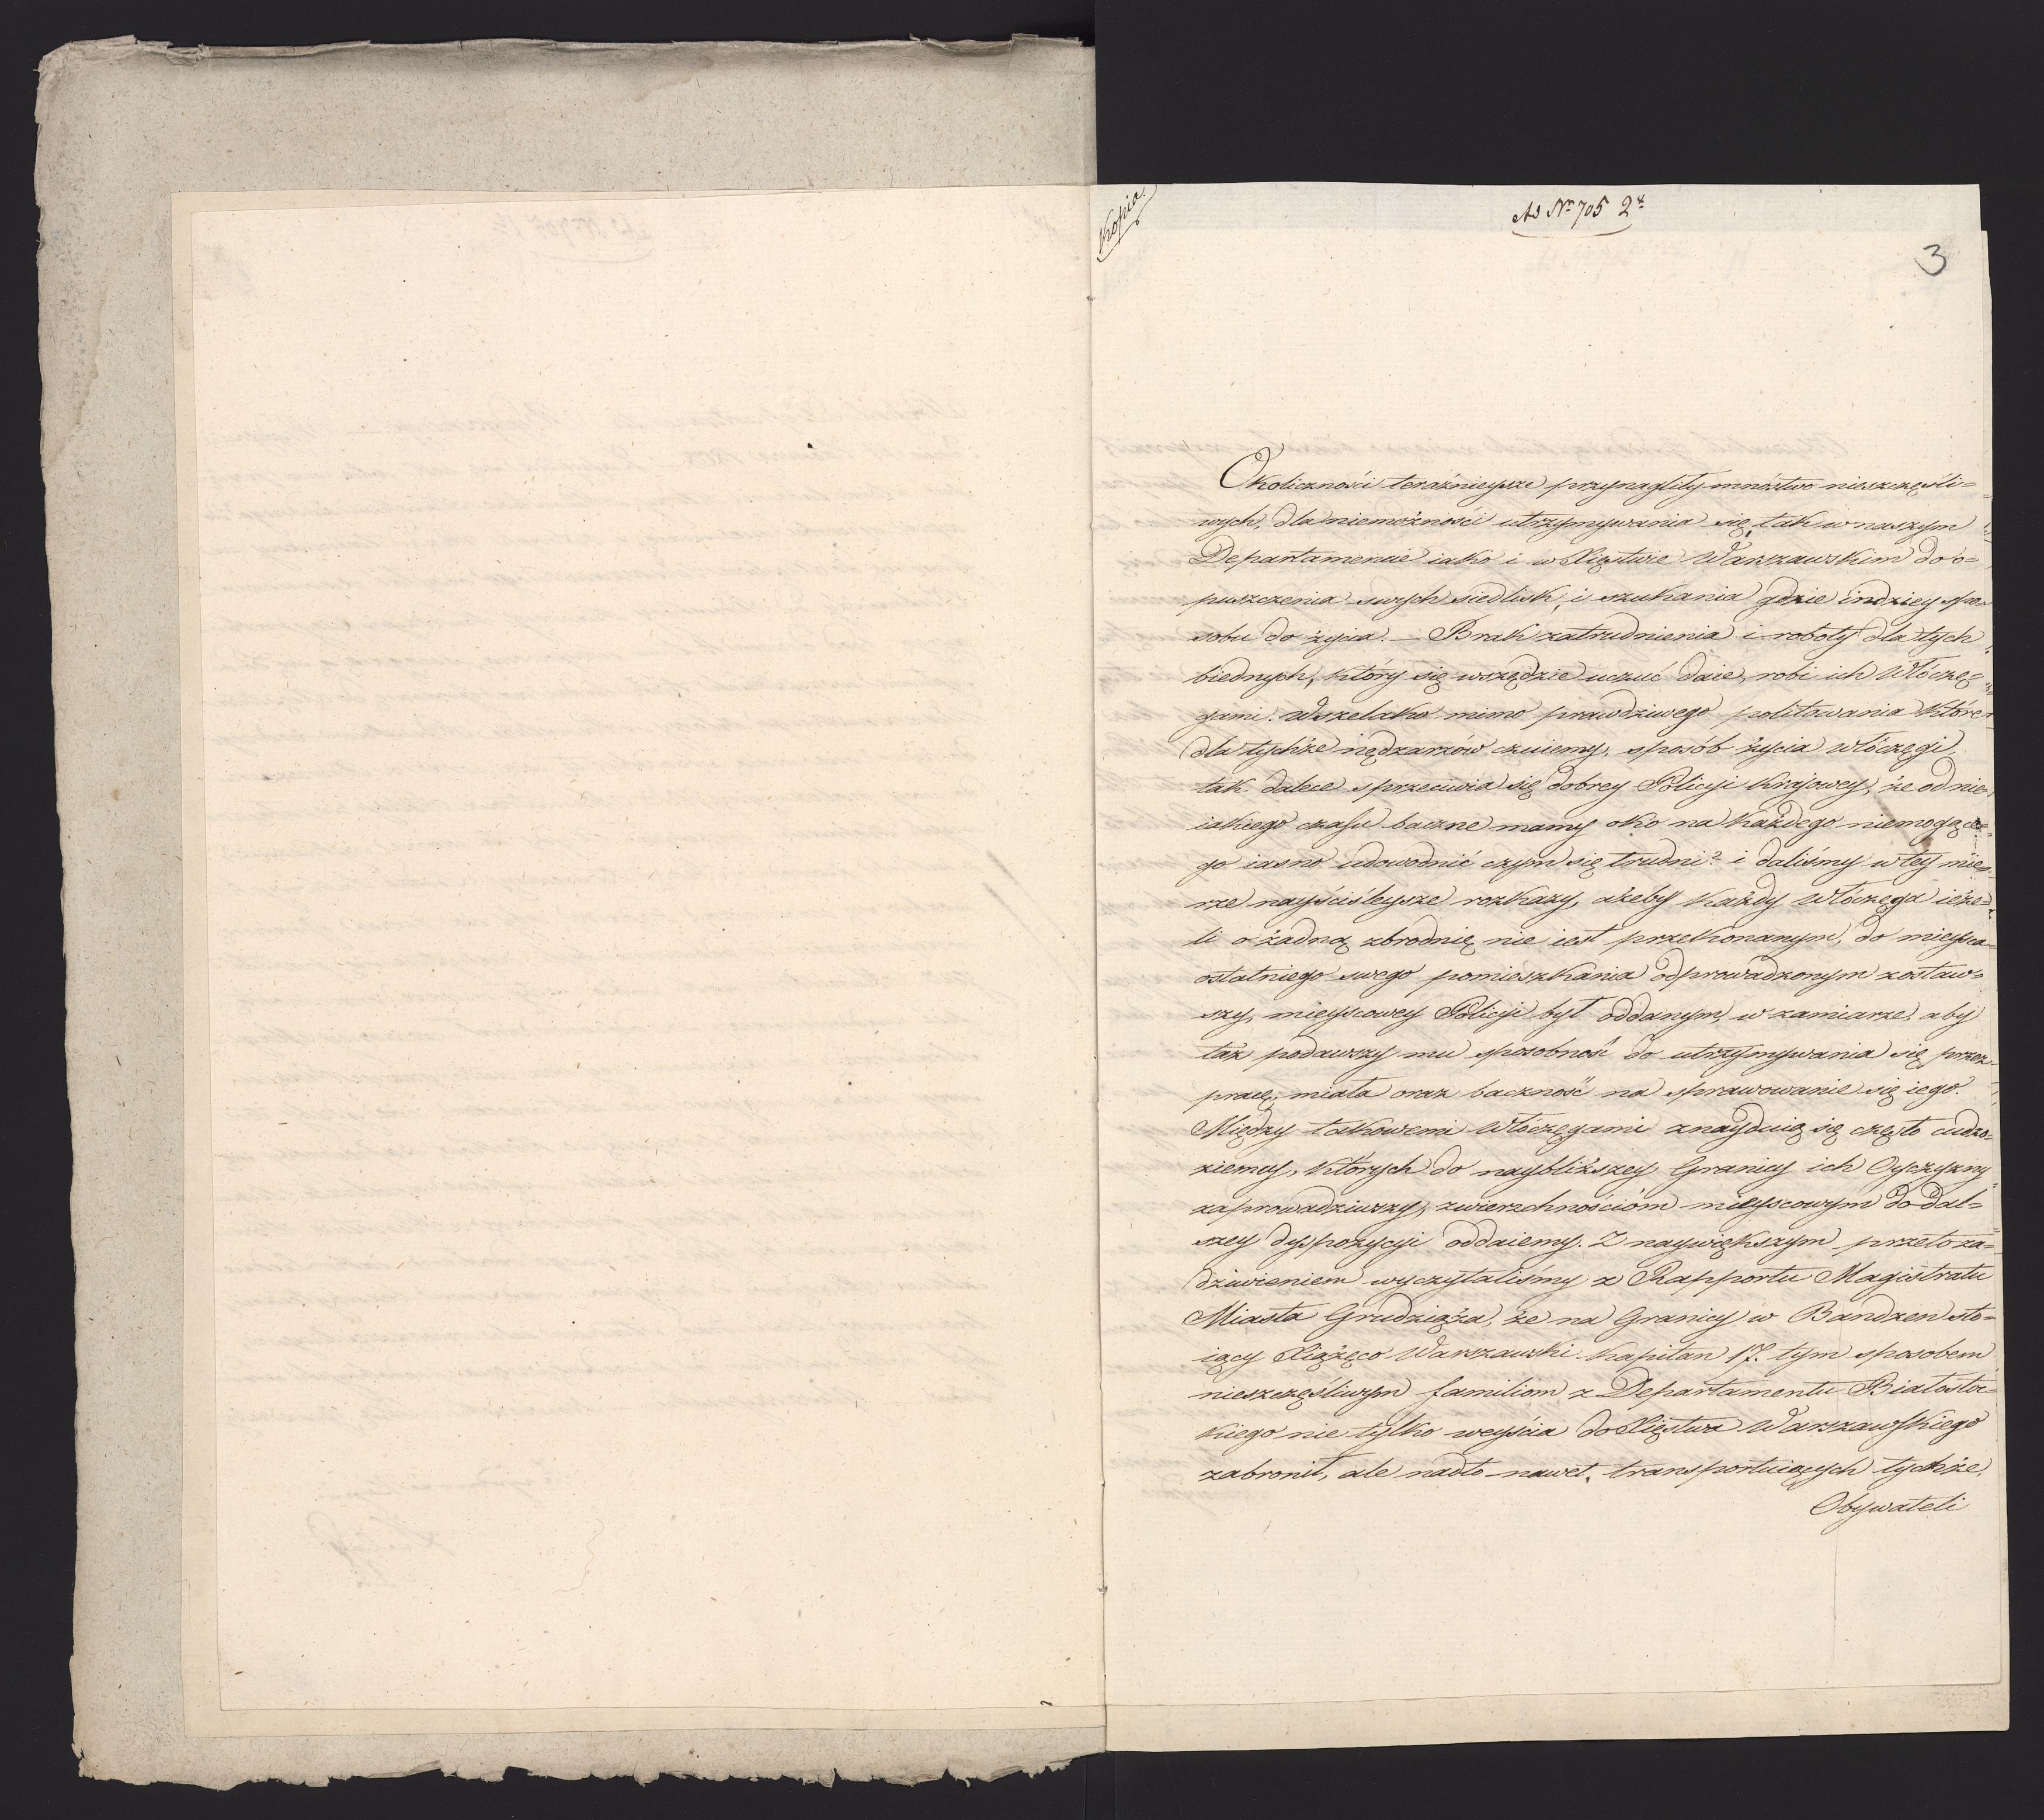 Kopia.
Ad Nr 705 2.
3
Okoliczności teraźnieysze przynagliły mnóstwo nieszczęśli=
wych, dla niemożności utrzymywania się, tak w naszym
Departamencie iako i w Xięstwie Warszawskim do o=
puszczenia swych siedlisk, i szukania gdzie indziey spo=
sobu do życia. — Brak zatrudnienia i roboty dla tych
biednych, który się wszędzie uczuć daie, robi ich Włóczę=
gami. Wszelako mimo prawdziwego politowania które
dla tychże nędzarzów czuiemy, sposób życia włóczęgi,
tak dalece sprzeciwia się dobrey Policyi Krajowey, że od nie=
iakiego czasu baczne mamy oko na każdego niemogące=
go iasno udowodnić czym się trudni? i daliśmy w tey mie=
rze nayściśleysze rozkazy, ażeby każdy Włóczęga ieże=
li o żadną zbrodnię nie iest przekonanym, do mieysca
ostatniego swego pomieszkania odprowadzonym zostaw=
szy, mieyscowey Policyi był oddanym, w zamiarze, aby
taż podawszy mu sposobność do utrzymywania się przez
pracę, miała oraz baczność na sprawowanie się iego.
Między takowemi Włóczęgami znayduią się często cudzo=
ziemcy, których do naybliższey Granicy ich Oyczyzny
zaprowadziwszy, zwierzchnościóm mieyscowym do dal=
szey dyspozycyi oddaiemy. Z naywiększym przeto za=
dziwieniem wyczytaliśmy z Rapportu Magistratu
Miasta Grudziąża, że na Granicy w Bandzen sto=
iący Xiążęco Warszawski Kapitan 17. tym sposobem
nieszczęśliwym familiom z Departamentu Białostoc=
kiego nie tylko weyścia do Xięstwa Warszawskiego
zabronił, ale nadto nawet, transportuiących tychże,
Obywateli